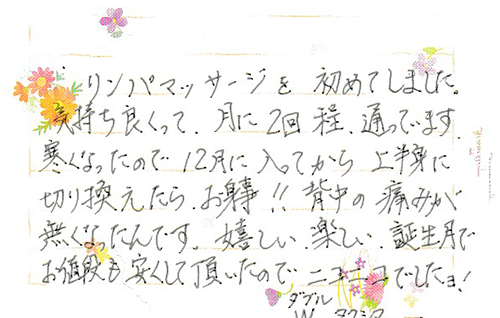 リンパマッサージを 初めてしました。
気持ち良くって、月に2回程、通ってます。
寒くなったので12月に入ってから上半身に
切り換えたら、お見事!!背中の痛みが
無くなったんです。嬉しい、楽しい、誕生月で
お値段も安くして頂いたのでニコニコでしたョ!
ダブル